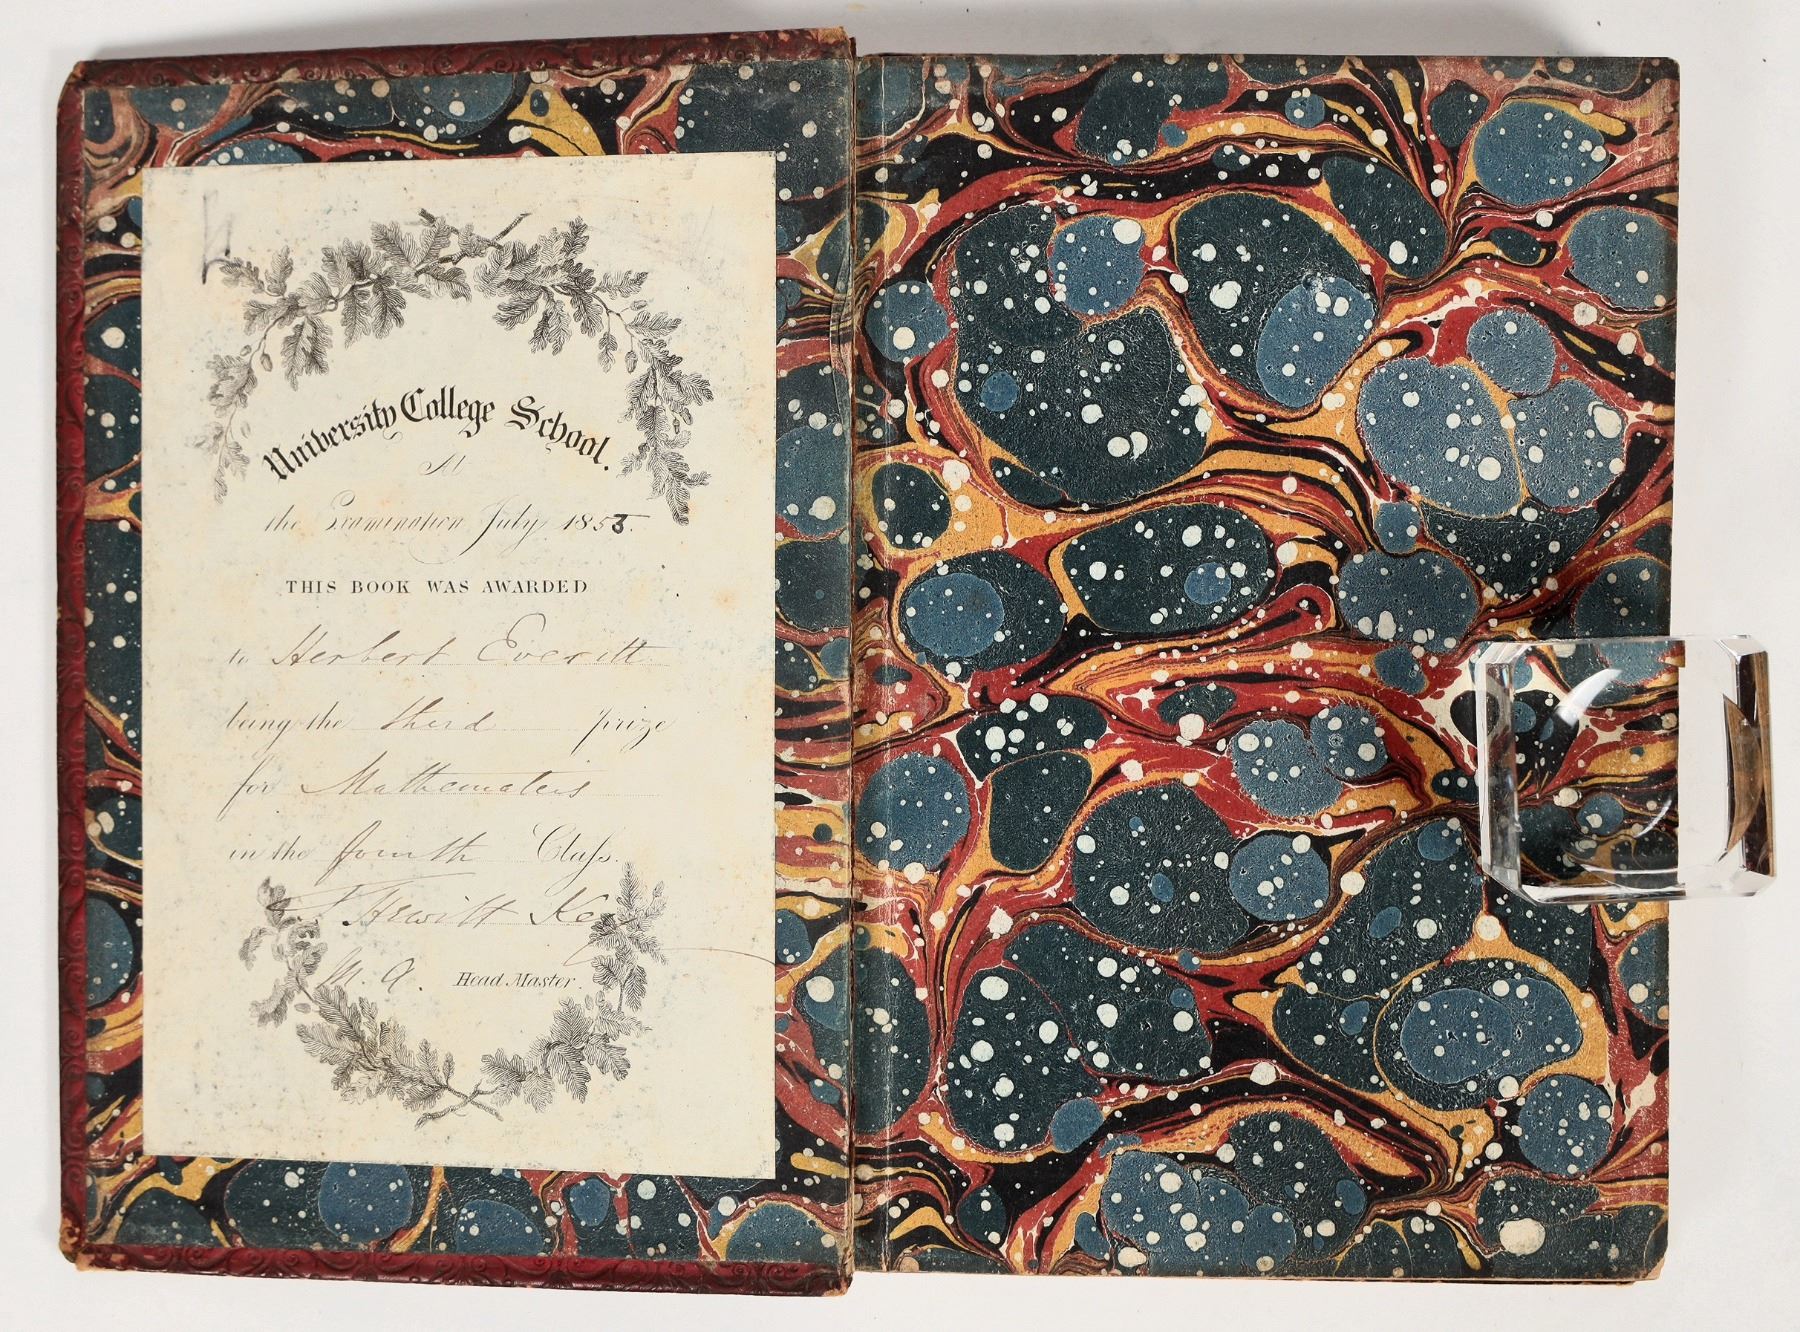 University College School.
At
the Examination July 1853.
THIS BOOK WAS AWARDED
to Herbert Everitt
being the third prize
for Mathematics
in the fourth Claſs.
T Hewitt Key
M. A. Head Master.